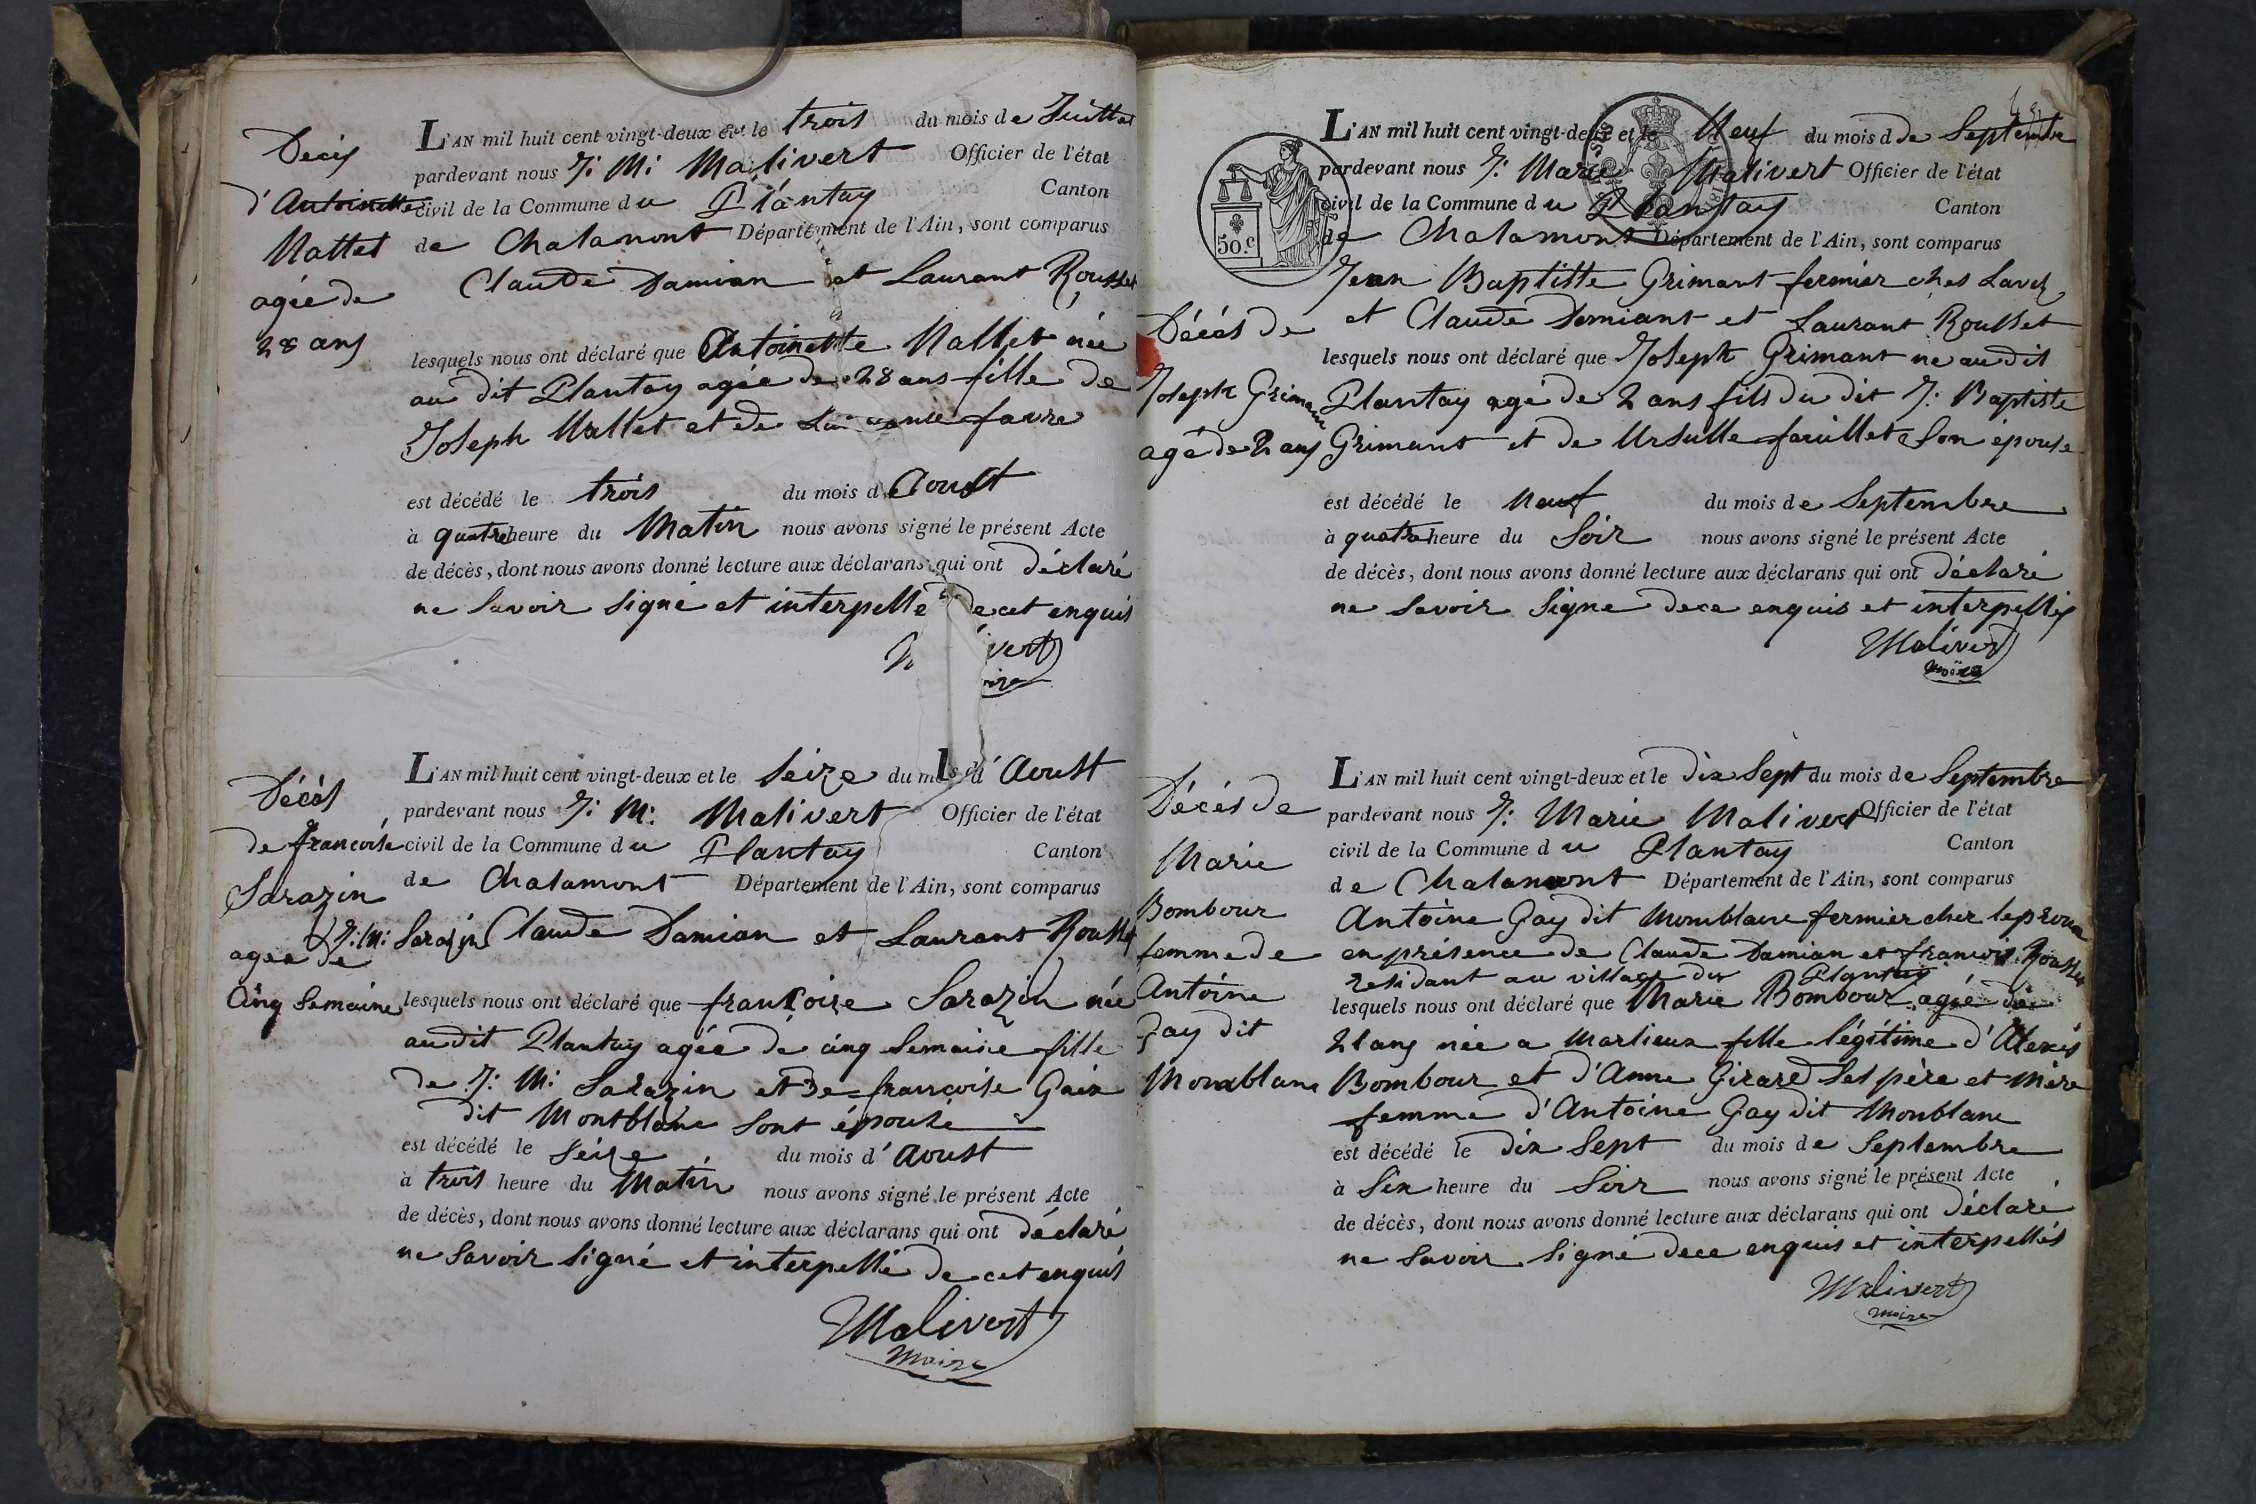 Decis
d'Antoinette
Mallet
agée de
28 ans
L'AN mil huit cent vingt-deux et le trois du mois de Juillet
pardevant nous J: M: Malivert Officier de l'état
civil de la Commune du Plantay Canton
de Chalamont Département de l'Ain, sont comparus
Claude Damian et Laurant Rousset
lesquels nous ont déclaré que Antoinette Mallet née
au dit Plantay agée de 28 ans fille de
Joseph Mallet et de favre
est décédé le trois du mois d Aoust
à quatre heure du Matin nous avons signé le présent Acte
de décès, dont nous avons donné lecture aux déclarans qui ont déclaré
ne savoir signé et interpellé de cet enquis
Décès
de françoise
Sarazin
agée de
Cinq Semaine
L'AN mil huit cent vingt-deux et le seize du mois d'Aoust
pardevant nous J: M: Malivert Officier de l'état
civil de la Commune du Plantay Canton
de Chalamont Département de l'Ain, sont comparus
J: M: Sarazin Claude Damian et Laurant Rousset
lesquels nous ont déclaré que françoise Sarazin née
audit Plantay agée de cinq Semaine fille
de J: M: Sarazin et de françoise Gaix
dit Montblanc sont épouse
est décédé le seize du mois d'Aoust
à trois heure du Matin nous avons signé le présent Acte
de décès, dont nous avons donné lecture aux déclarans qui ont déclaré
ne savoir signé et interpellé de cet enquis
Malivert
Maire
50.c
Décés de
Joseph Grimant
agé de 2 ans
L'AN mil huit cent vingt-deux et le Neuf du mois d de Septembre
pardevant nous J: Marie Malivert Officier de l'état
civil de la Commune du Plantay Canton
de Chalamont Département de l'Ain, sont comparus
Jean Baptiste Grimant fermier ches
et Claude Damiant et Laurant Rousset
lesquels nous ont déclaré que Joseph Grimant ne audit
Plantay agé de 2 ans fils du dit J: Baptiste
Grimant et de Ursulle son épouse
est décédé le Neuf du mois de Septembre
à quatre heure du Soir nous avons signé le présent Acte
de décès, dont nous avons donné lecture aux déclarans qui ont déclaré
ne savoir signe dece enquis et interpellés
Malivert
Maire
Décés de
Marie
Bombour
femme de
Antoine
Gay dit
Monblanc
L'AN mil huit cent vingt-deux et le dix Sept du mois de Septembre
pardevant nous J: Marie Malivert Officier de l'état
civil de la Commune du Plantay Canton
de Chalamont Département de l'Ain, sont comparus
Antoine Gay dit Momblanc fermier cher
en présence de Claude Damian et francois Rousset
residant au village du Plantay
lesquels nous ont déclaré que Marie Bombour agée de
21 ans née a Marlieux fille légitime d'Alexis
Bombour et d'Anne Girard ses père et mère
femme d'Antoine Gay dit Monblanc
est décédé le dix Sept du mois de Septembre
à Six heure du Soir nous avons signé le présent Acte
de décès, dont nous avons donné lecture aux déclarans qui ont déclaré
ne savoir signé dece enquis et interpellés
Malivert
Maire